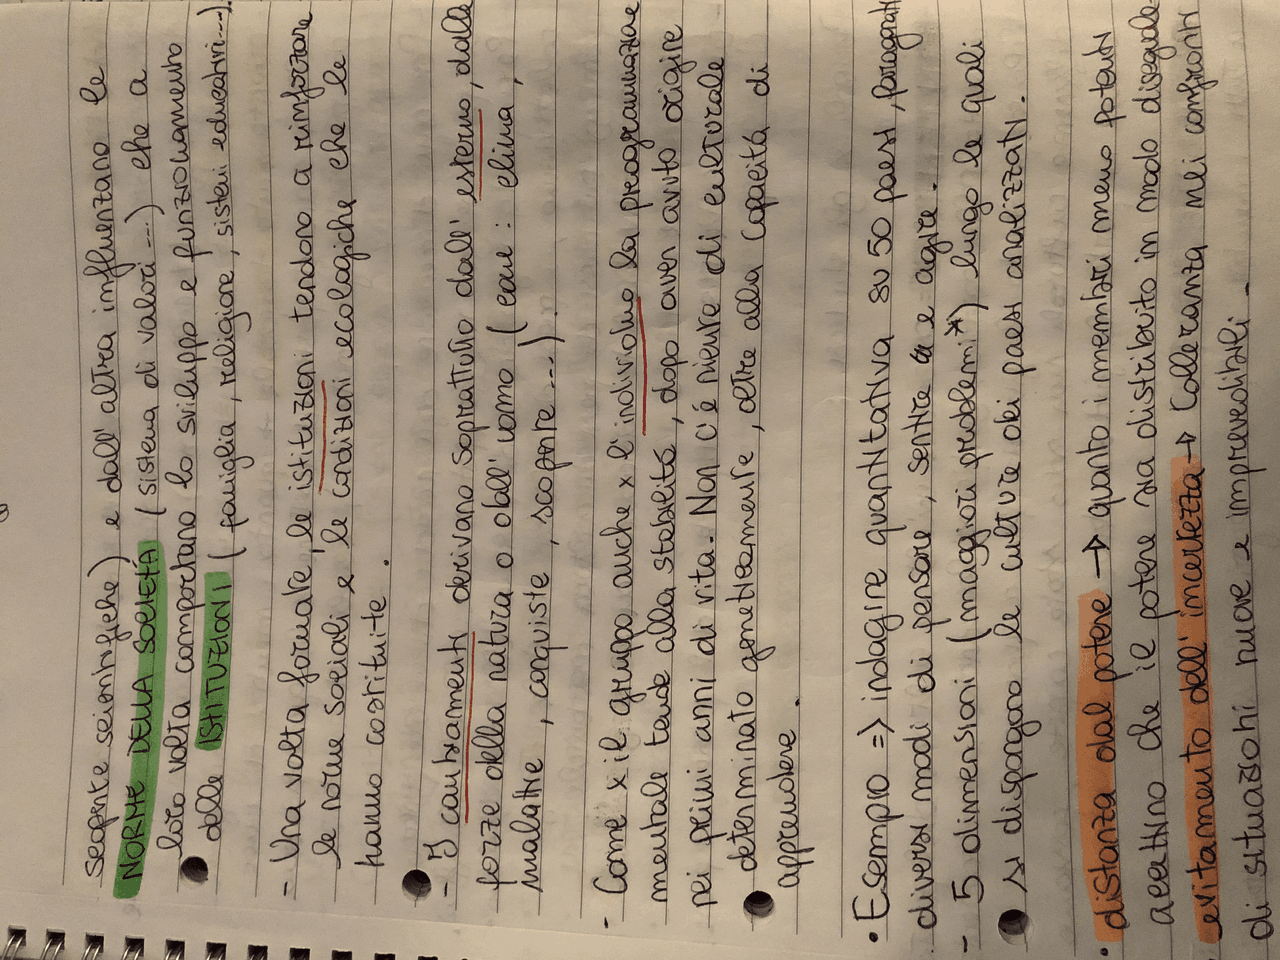 scoperte scientifiche) e dall'altra influenzano le
NORME DELLA SOCIETÀ (sistema di valori...) che a
loro volta comportano lo sviluppo e funzionamento
delle ISTITUZIONI (famiglia, religione, sistemi educativi...).
- Una volta formate, le istituzioni tendono a rinforzare
le norme sociali e le condizioni ecologiche che le
hanno costituite.
- I cambiamenti derivano soprattutto dall'esterno, dalle
forze della natura o dall'uomo (come: clima,
malattie, conquiste, scoperte...).
- Come x il gruppo anche x l'individuo la programmazione
mentale tende alla stabilità, dopo aver avuto origine
nei primi anni di vita. Non c'é niente di culturale
determinato geneticamente, oltre alla capacità di
apprendere.
• Esempio => indagine quantitativa su 50 paesi, paragonati
diversi modi di pensare, sentire e agire.
- 5 dimensioni (maggiori problemi*) lungo le quali
si dispongono le culture dei paesi analizzati.
• distanza dal potere → quanto i membri meno potenti
accettino che il potere sia distribuito in modo diseguale
• evitamento dell'incertezza → tolleranza nei confronti
di situazioni nuove e imprevedibili.